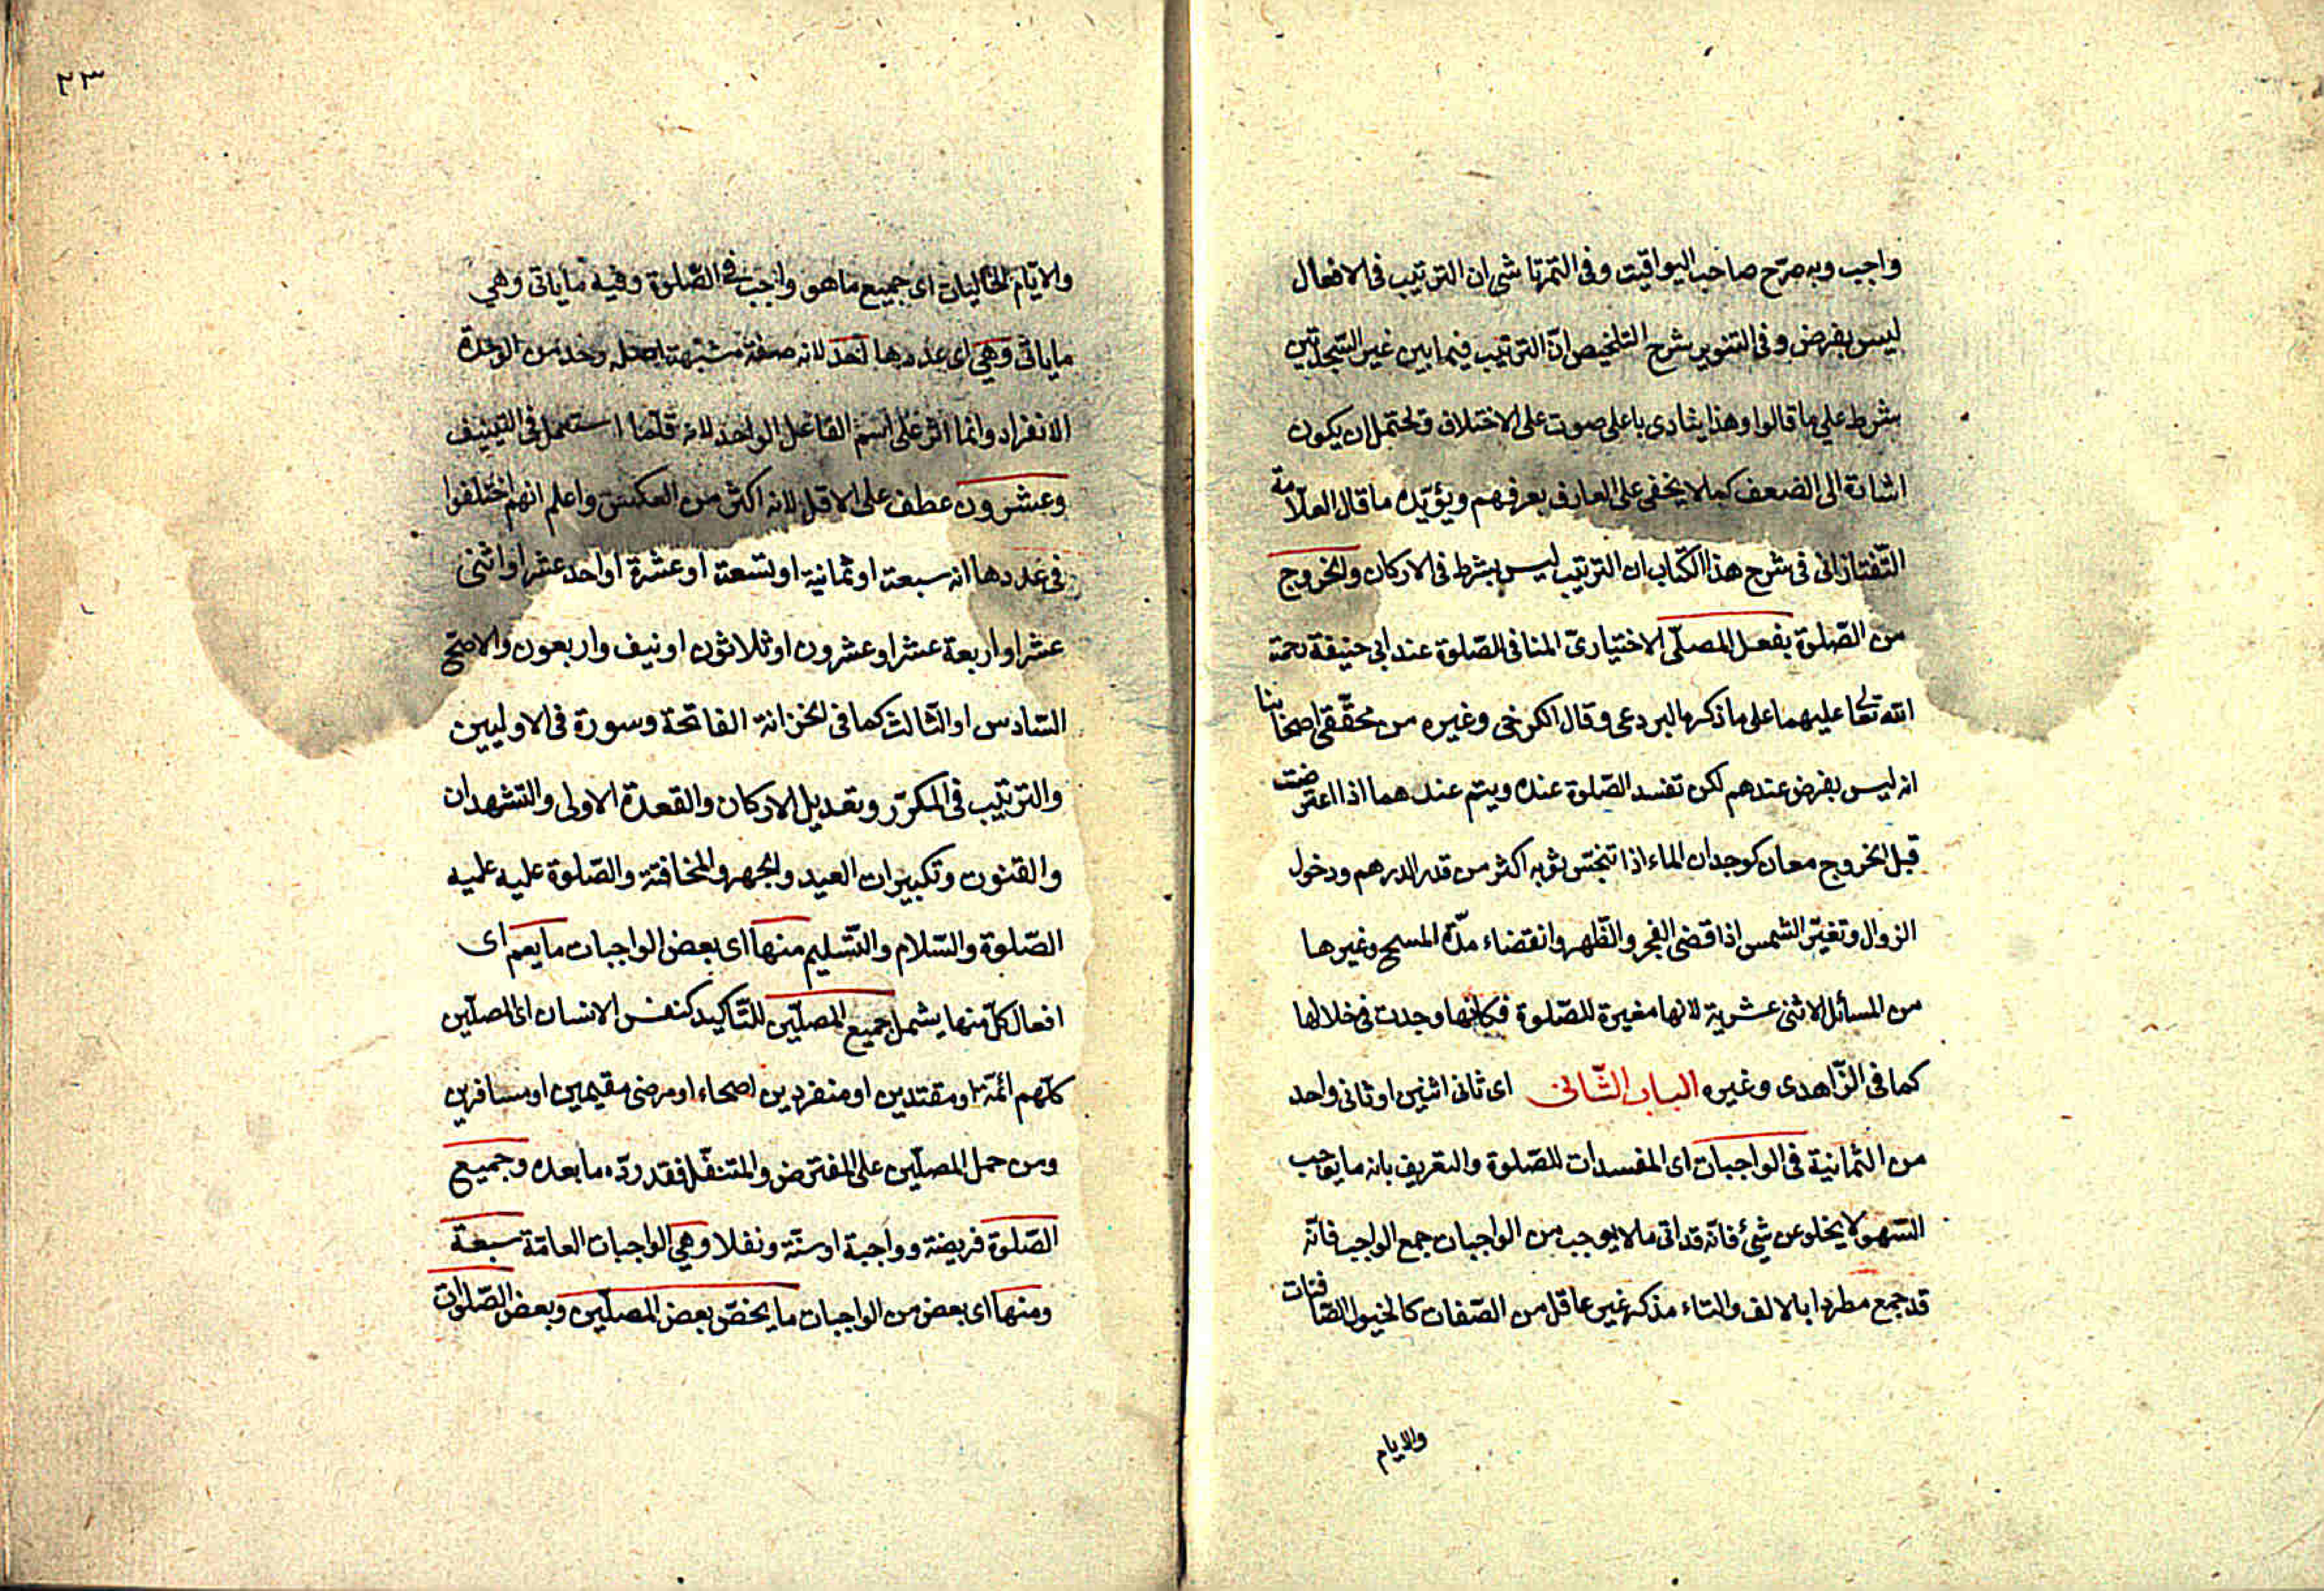 واجب وبه صرّح صاحب اليواقيت وفى التمرتاشى ان الترتيب فى الافعال
ليس بفرض وفى التنوير شرح التلخيص انّ الترتيب فيما بين غير السّجدتين
بشرط على ما قالوا وهذا ينادى باعلى صوت على الاختلاف ويحتمل ان يكون
اشارة الى الضعف كما لا يخفى على العارف بعرفهم ويؤيّده ما قال العلّامة
التّفتازانى فى شرح هذا الكتاب ان الترتيب ليس بشرط فى الاركان والخروج
من الصّلوة بفعل المصلّى الاختيارىّ المنافى الصّلوة عند ابى حنيفة رحمة
الله تعالى عليهما على ما ذكره البردعى وقال الكرخى وغيره من محقّقى اصحابنا
انه ليس بفرض عندهم لكن تفسد الصّلوة عنده ويتم عندهما اذا اعترضت
قبل الخروج معان كوجدان الماء اذا تنجّس ثوبه اكثر من قدر الدرهم ودخول
الزوال وتغيّر الشمس اذا قضى الفجر والظّهر وانقضاء مدّة المسح وغيرها
من المسائل الاثنى عشرية لانها مغيرة للصّلوة فكانّها وجدت فى خلالها
كما فى الزّاهدى وغيره الباب الثّانى اى ثانى اثنين او ثانى واحد
من الثمانية فى الواجبات اى المفسدات للصّلوة والتعريف بانه ما يوجب
السّهو لا يخلو عن شئ فانّه قد اتى ما لا يوجب من الواجبات جمع الواجب فانّه
قد جمع مطردا بالالف والتاء مذكر غير عاقل من الصّفات كالخيول الصّافنات
والايام
٢٣
والايّام الخاليات اى جميع ما هو واجب فى الصّلوة وفيه ما ياتى وهى
ما ياتى وهى اى عددها احد لانه صفة مشبّهة اصله وحد من الوحدة
الانفراد وانما اثر على اسم الفاعل الواحد لانه قلّما استعمل فى التنييف
وعشرون عطف على الاقل لانه اكثر من العكس واعلم انهم اختلفوا
فى عددها انه سبعة او ثمانية او تسعة او عشرة او احد عشر او اثنى
عشر او اربعة عشر او عشرون او ثلاثون او نيف واربعون والاصحّ
السّادس او الثالث كما فى الخزانة الفاتحة وسورة فى الاوليين
والترتيب فى المكرّر وتعديل الاركان والقعدة الاولى والتشهدان
والقنوت وتكبيرات العيد والجهر والمخافتة والصّلوة عليه عليه
الصّلوة والسّلام والتّسليم منها اى بعض الواجبات ما يعم اى
افعال كلّ منها يشمل جميع المصلّين للتّاكيد كنفس الانسان اى المصلّين
كلّهم ائمّة او مقتدين او منفردين اصحاء او مرضى مقيمين او مسافرين
ومن حمل المصلّين على المفترض والمتنفّل فقد ردّه ما بعده وجميع
الصّلوة فريضة وواجبة او سنّة ونفلا وهى الواجبات العامّة سبعة
ومنها اى بعض من الواجبات ما يخصّ بعض المصلّين وبعض الصّلوات